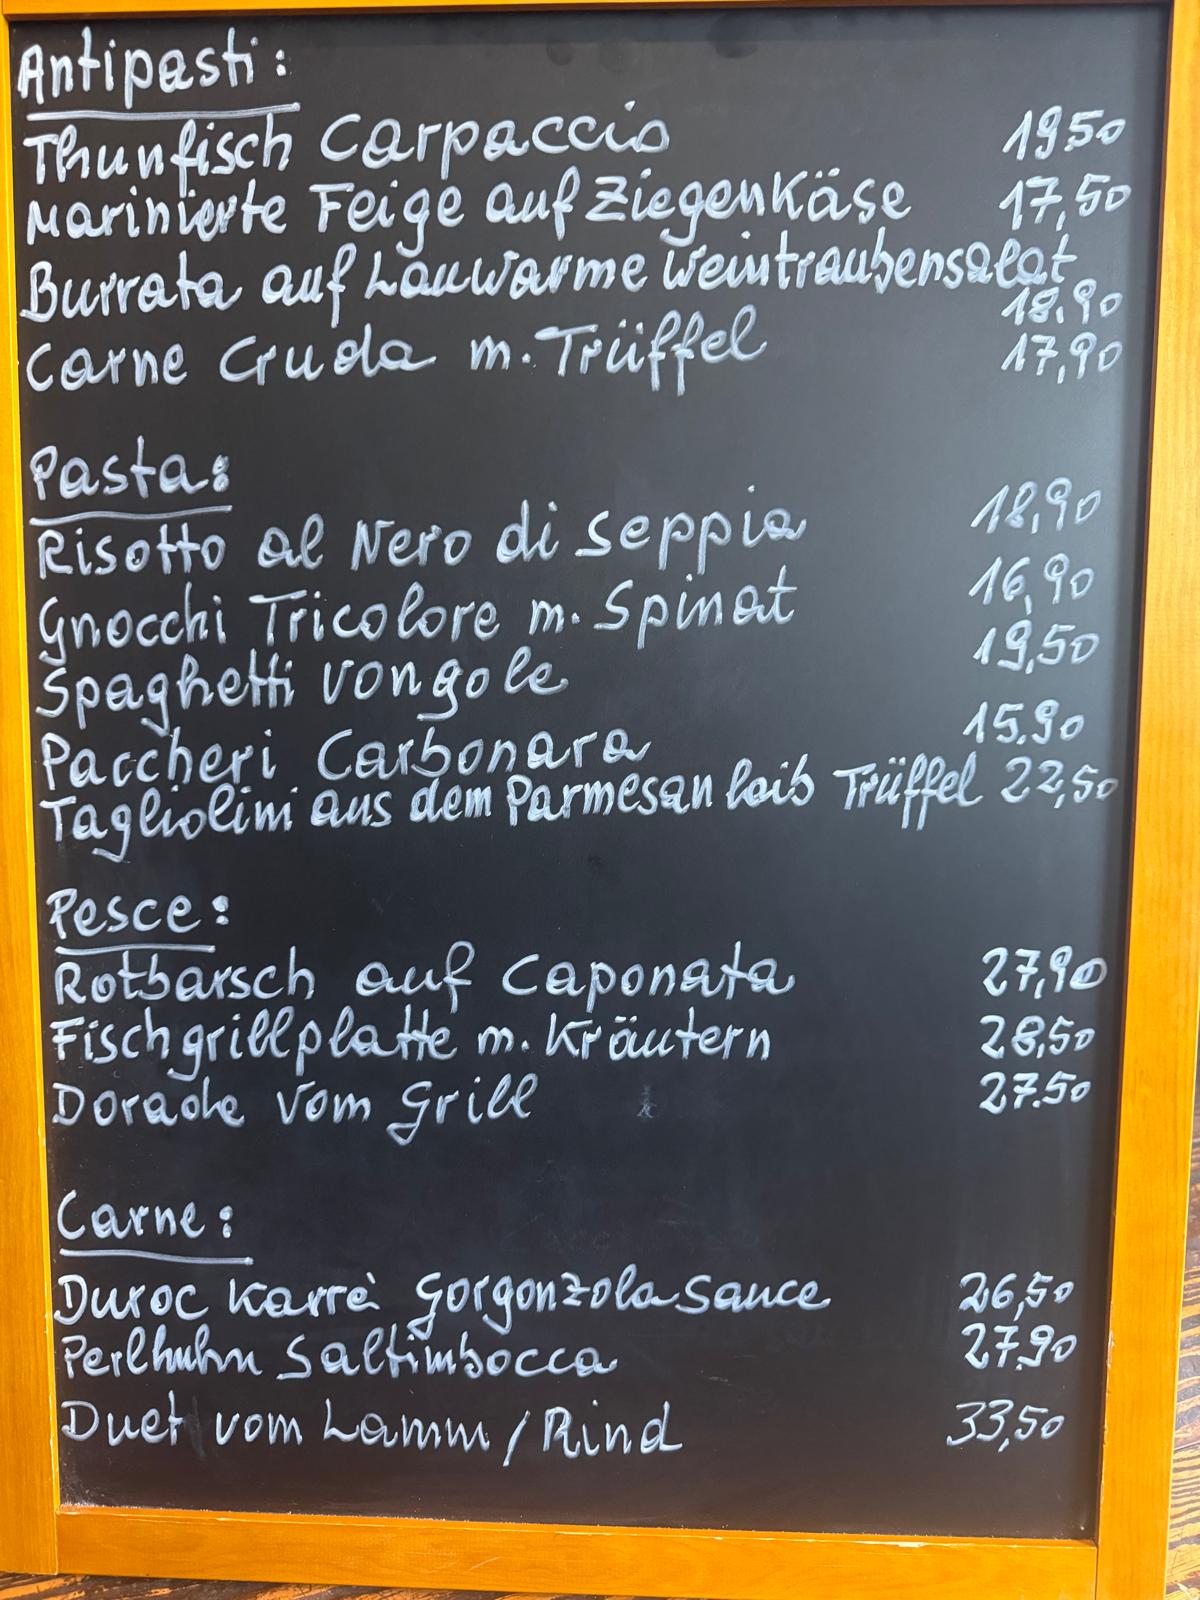 Antipasti:
Thunfisch Carpaccio 19.50
Marinierte Feige auf Ziegenkäse 17,50
Burrata auf Lauwarme Weintraubensalat
18.90
Carne Cruda m. Trüffel 17,90
Pasta:
Risotto al Nero di Seppia 18,90
Gnocchi Tricolore m. Spinat 16,90
Spaghetti Vongole 19,50
Paccheri Carbonara 15.90
Tagliolini aus dem Parmesan laib Trüffel 22,50
Pesce:
Rotbarsch auf Caponata 27,90
Fischgrillplatte m. Kräutern 28,50
Dorade vom Grill 27.50
Carne:
Duroc Karrè Gorgonzola Sauce 26,50
Perlhuhn Saltimbocca 27.90
Duet vom Lamm / Rind 33,50